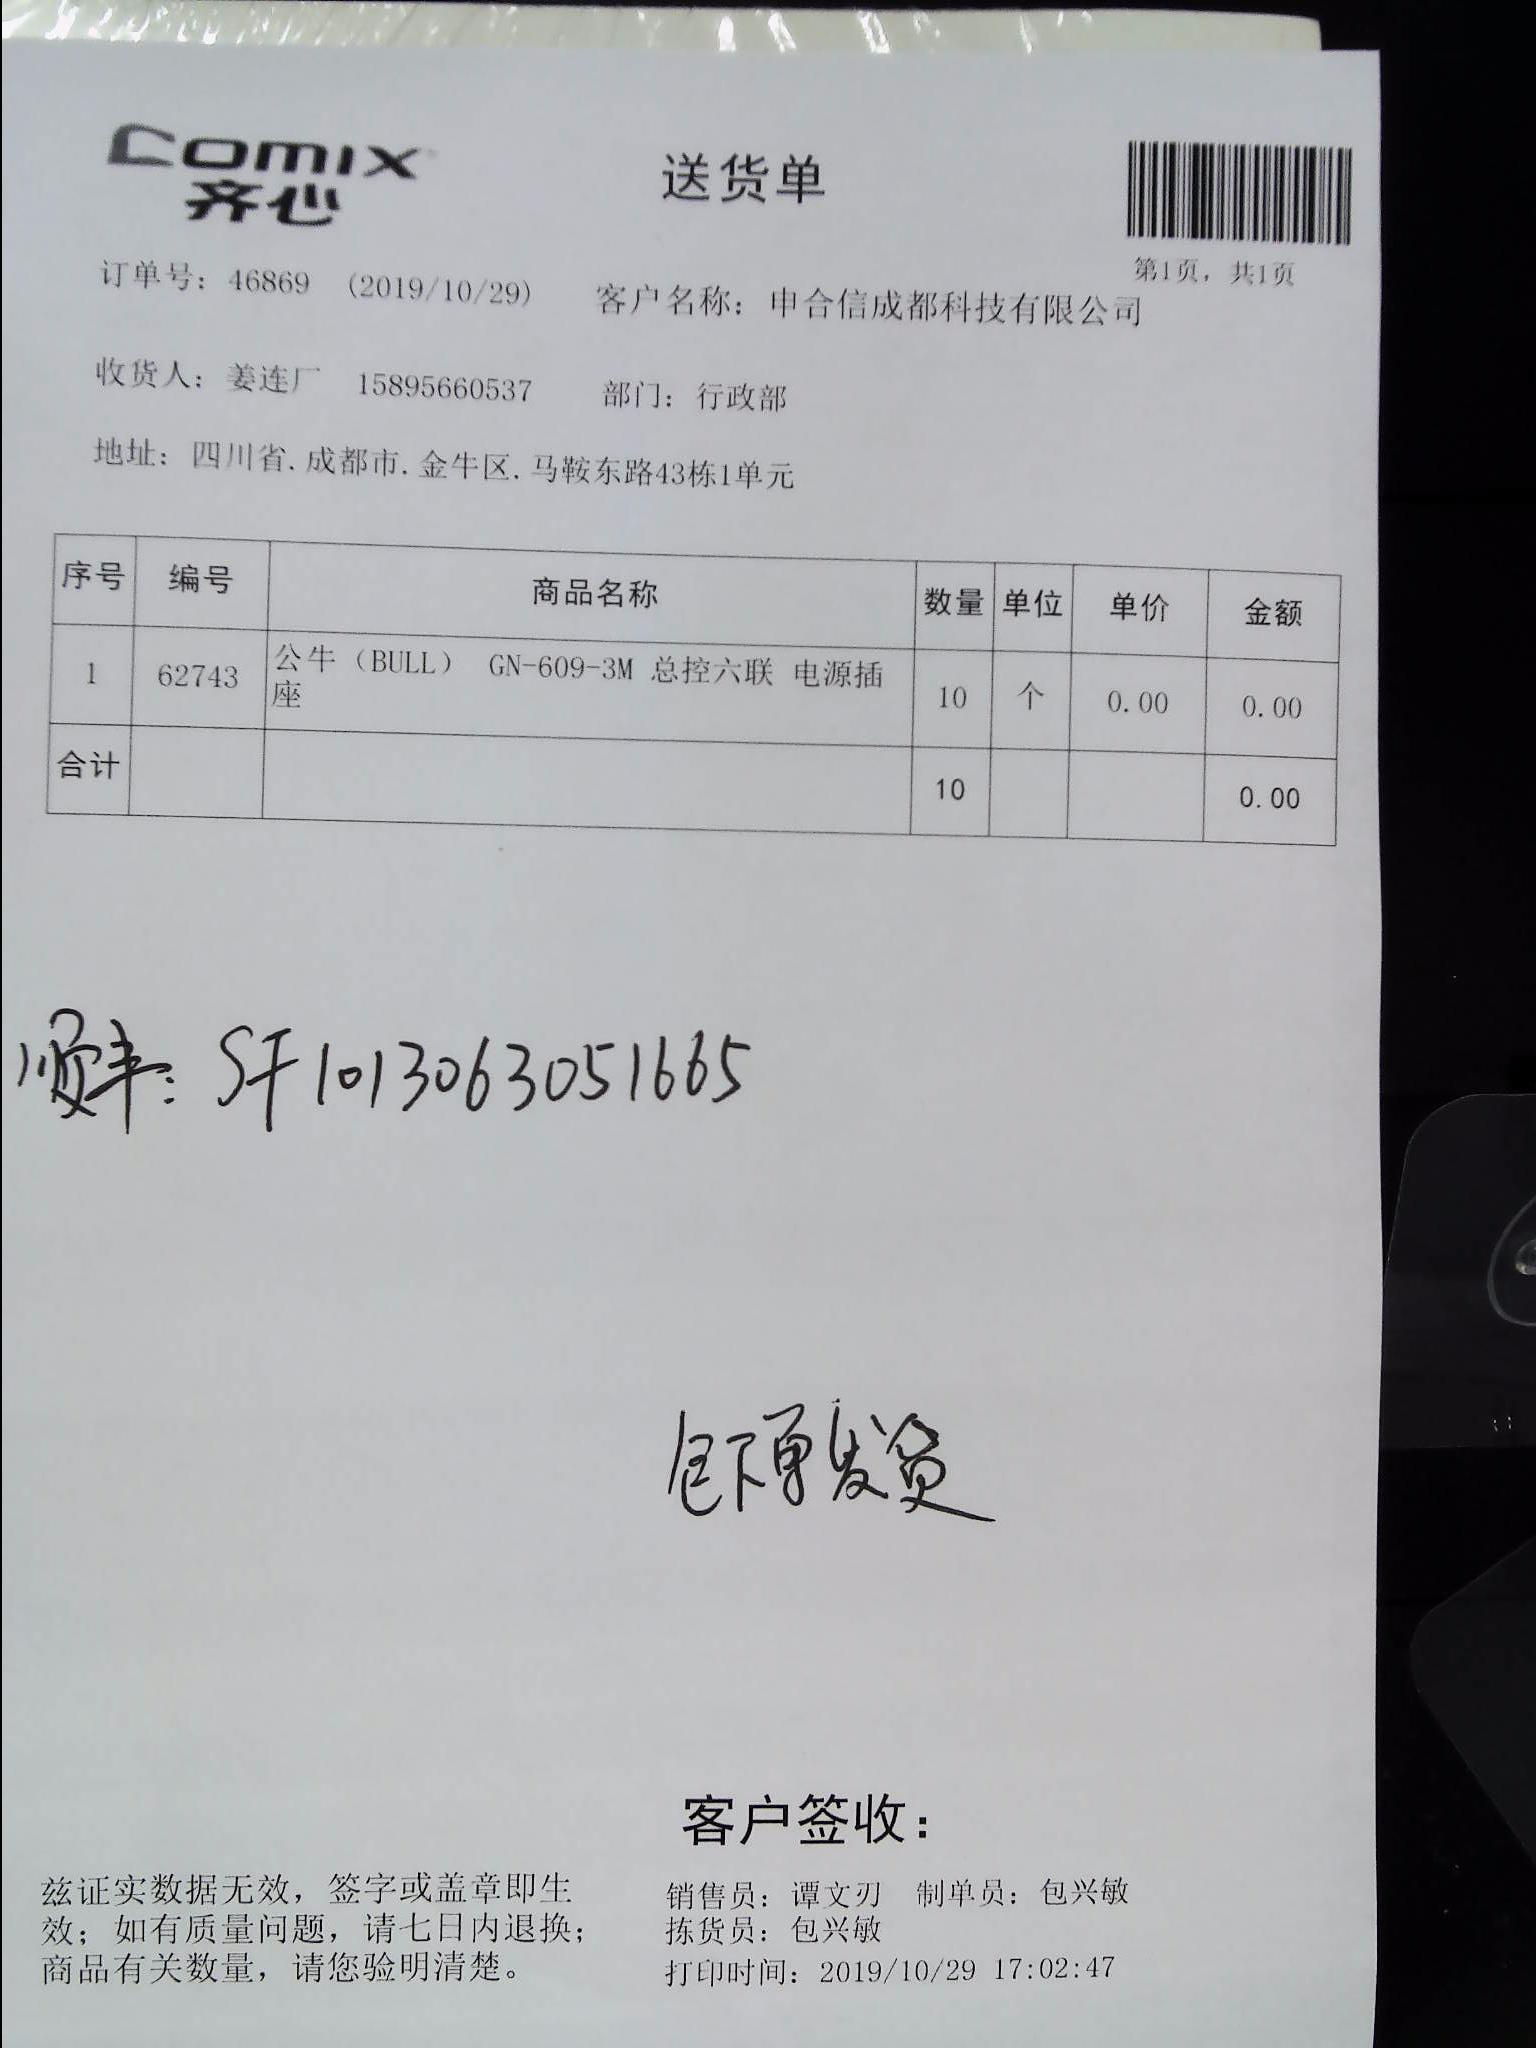 Comix
齐心
送货单
第1页，共1页
订单号：46869 (2019/10/29) 客户名称：申合信成都科技有限公司
收货人：姜连厂 15895660537 部门：行政部
地址：四川省.成都市.金牛区.马鞍东路43栋1单元
序号 编号 商品名称 数量 单位 单价 金额
1 62743 公牛（BULL） GN-609-3M 总控六联 电源插 10 个 0.00 0.00
座
合计 10 0.00
顺丰：SF1013063051665
包下单发货
客户签收：
兹证实数据无效，签字或盖章即生
效；如有质量问题，请七日内退换；
商品有关数量，请您验明清楚。
销售员：谭文刃 制单员：包兴敏
拣货员：包兴敏
打印时间：2019/10/29 17:02:47